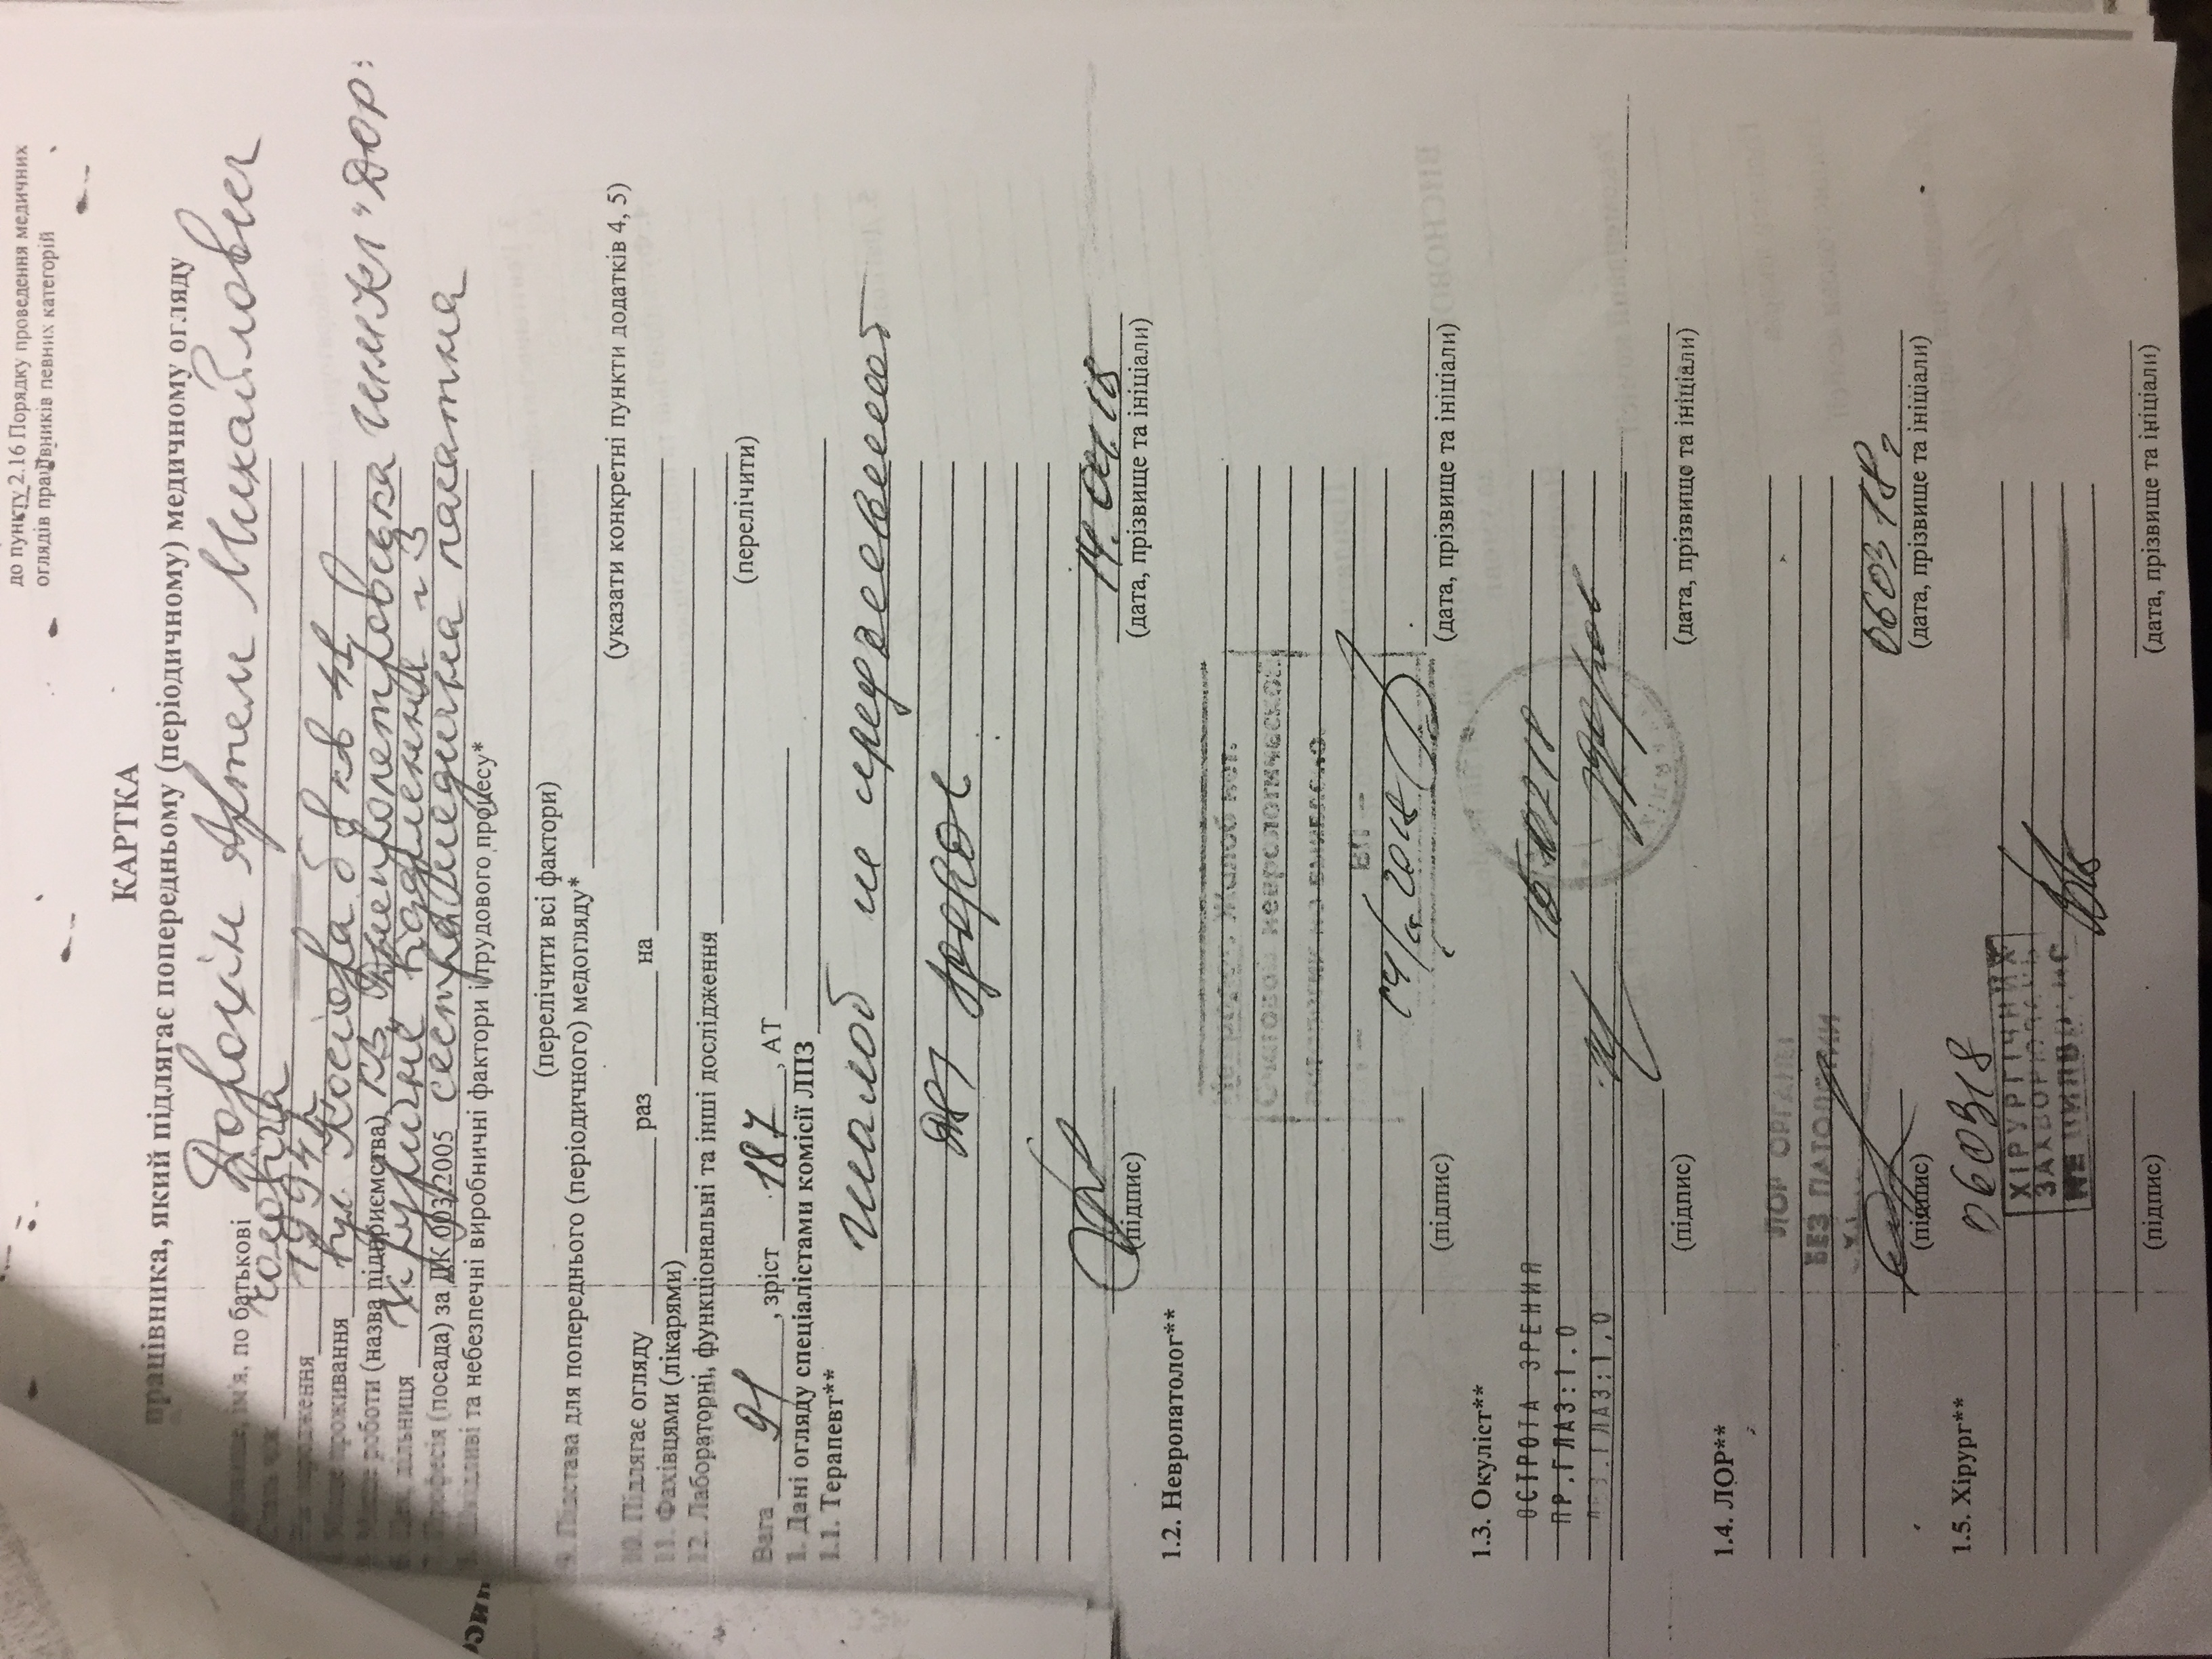 до пункту 2.16 Порядку проведення медичних
оглядів працівників певних категорій
КАРТКА
працівника, який підлягає попередньому (періодичному) медичному огляду
ім'я, по батькові Дорохін Артем Михайлович
чоловіча
народження 1994
проживання вул. Косіора б 8 кв 41
роботи (назва підприємства) КЗ "Днепропетровська ШМКЛ" ДОР"
дільниця Хірургічне відділення №3
7. Професія (посада) за ДК 003/2005 сестра медична палатна
та небезпечні виробничні фактори і трудового процесу*
(перелічити всі фактори)
9. Підстава для попереднього (періодичного) медогляду*
(указати конкретні пункти додатків 4, 5)
10. Підлягає огляду раз на
11. Фахівцями (лікарями)
12. Лабораторні, функціональні та інші дослідження
(перелічити)
Вага 91, зріст 187, АТ
1. Дані огляду спеціалістами комісії ЛПЗ
1.1. Терапевт**
жалоб не предъявляет
здоров
14.04.18
(підпис) (дата, прізвище та ініціали)
1.2. Невропатолог**
Невролог. Жалоб нет.
Очаговой неврологической
патологии не выявлено.
ВП –
2018
(підпис) (дата, прізвище та ініціали)
1.3. Окуліст**
ОСТРОТА ЗРЕНИЯ
ПР.ГЛАЗ:1.0
ЛЕВ.ГЛАЗ:1.0
здоров
(підпис) (дата, прізвище та ініціали)
1.4. ЛОР**
ЛОР ОРГАНЫ
БЕЗ ПАТОЛОГИИ
060318г
(підпис) (дата, прізвище та ініціали)
1.5. Хірург**
060318
ХІРУРГІЧНИХ
ЗАХВОРЮВАНЬ
НЕ ВИЯВЛЕНО
(підпис) (дата, прізвище та ініціали)